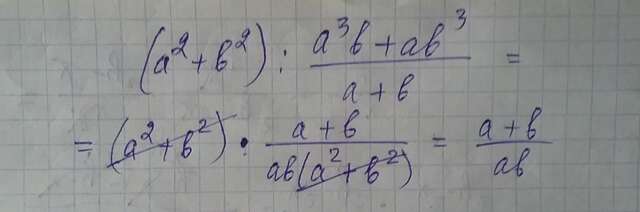 (a² + b²) : (a³b + ab³)/(a + b) =
= (a² + b²) · (a + b)/(ab(a² + b²)) = (a + b)/(ab)